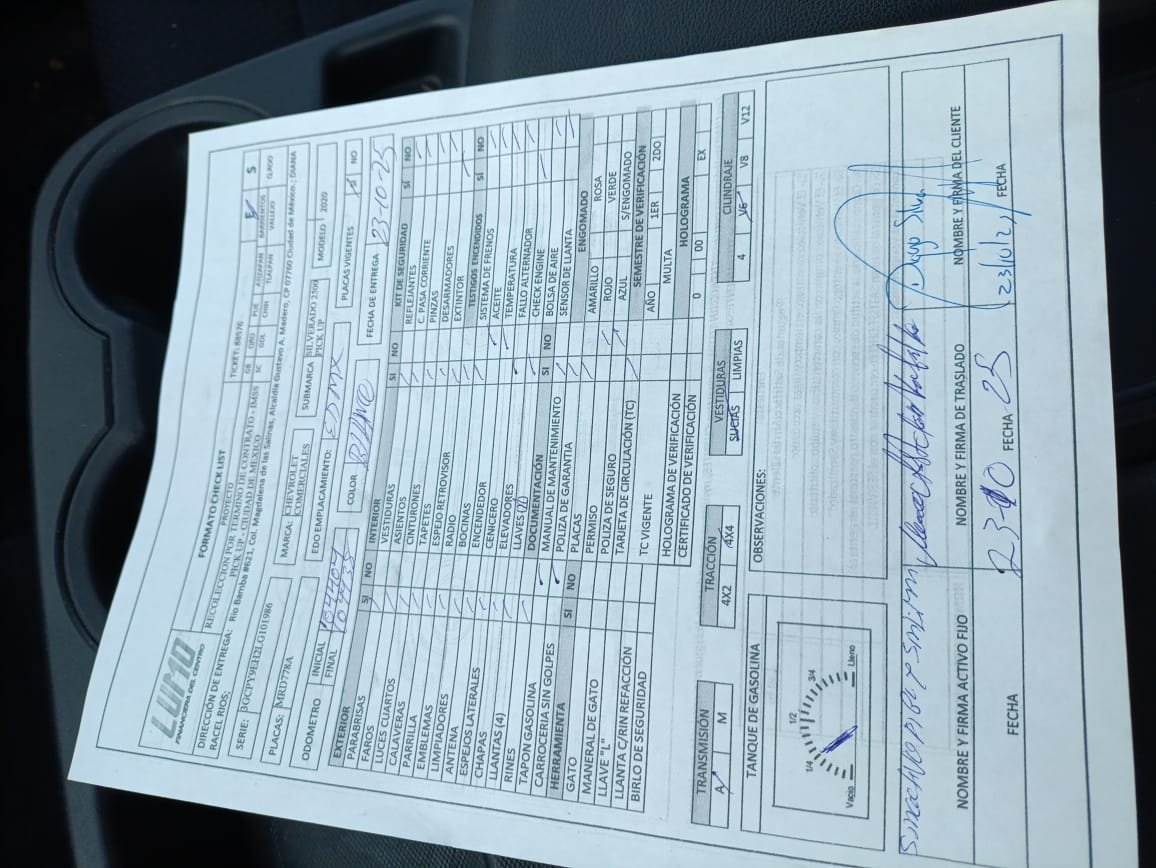 LUMO
FINANCIERA DEL CENTRO
FORMATO CHECK LIST
PROYECTO
RECOLECCION POR TERMINO DE CONTRATO - IMSS
PICK UP - CIUDAD DE MEXICO
TICKET: 88576
DIRECCIÓN DE ENTREGA: Rio Bamba #621, Col. Magdalena de las Salinas, Alcaldía Gustavo A. Madero, CP 07760 Ciudad de México.; DIANA
RACEL RIOS;
SERIE: 3GCPY9EH2LG101986
GB QRO PUE ATIZAPAN BARRIENTOS E S
SC GDL TLALPAN VALLEJO
PLACAS: MRD778A
MARCA: CHEVROLET COMERCIALES
SUBMARCA SILVERADO 2500 PICK UP
MODELO 2020
ODOMETRO INICIAL
FINAL
EDO EMPLACAMIENTO:
PLACAS VIGENTES SI NO
COLOR Blanco
FECHA DE ENTREGA 23-10-25
EXTERIOR SI NO
PARABRISAS
FAROS
LUCES CUARTOS
CALAVERAS
PARRILLA
EMBLEMAS
LIMPIADORES
ANTENA
ESPEJOS LATERALES
CHAPAS
LLANTAS (4)
RINES
TAPON GASOLINA
CARROCERIA SIN GOLPES
HERRAMIENTA SI NO
GATO
MANERAL DE GATO
LLAVE "L"
LLANTA C/RIN REFACCIÓN
BIRLO DE SEGURIDAD
INTERIOR SI NO
VESTIDURAS
ASIENTOS
CINTURONES
TAPETES
ESPEJO RETROVISOR
RADIO
BOCINAS
ENCENDEDOR
CENICERO
ELEVADORES
LLAVES
DOCUMENTACIÓN SI NO
MANUAL DE MANTENIMIENTO
POLIZA DE GARANTIA
PLACAS
PERMISO
POLIZA DE SEGURO
TARJETA DE CIRCULACIÓN (TC)
TC VIGENTE
HOLOGRAMA DE VERIFICACIÓN
CERTIFICADO DE VERIFICACIÓN
KIT DE SEGURIDAD SÍ NO
REFLEJANTES
C. PASA CORRIENTE
PINZAS
DESARMADORES
EXTINTOR
TESTIGOS ENCENDIDOS SÍ NO
SISTEMA DE FRENOS
ACEITE
TEMPERATURA
FALLO ALTERNADOR
CHECK ENGINE
BOLSA DE AIRE
SENSOR DE LLANTA
ENGOMADO
AMARILLO ROSA
ROJO VERDE
AZUL S/ENGOMADO
SEMESTRE DE VERIFICACIÓN
AÑO 1ER 2DO
MULTA
HOLOGRAMA
0 00 EX
TRANSMISIÓN
A M
TRACCIÓN
4X2 4X4
VESTIDURAS
SUCIAS LIMPIAS
CILINDRAJE
4 V6 V8 V12
TANQUE DE GASOLINA
Vacio 1/4 1/2 3/4 Lleno
OBSERVACIONES:
NOMBRE Y FIRMA ACTIVO FIJO
NOMBRE Y FIRMA DE TRASLADO
NOMBRE Y FIRMA DEL CLIENTE
FECHA
23 10 FECHA 25
FECHA